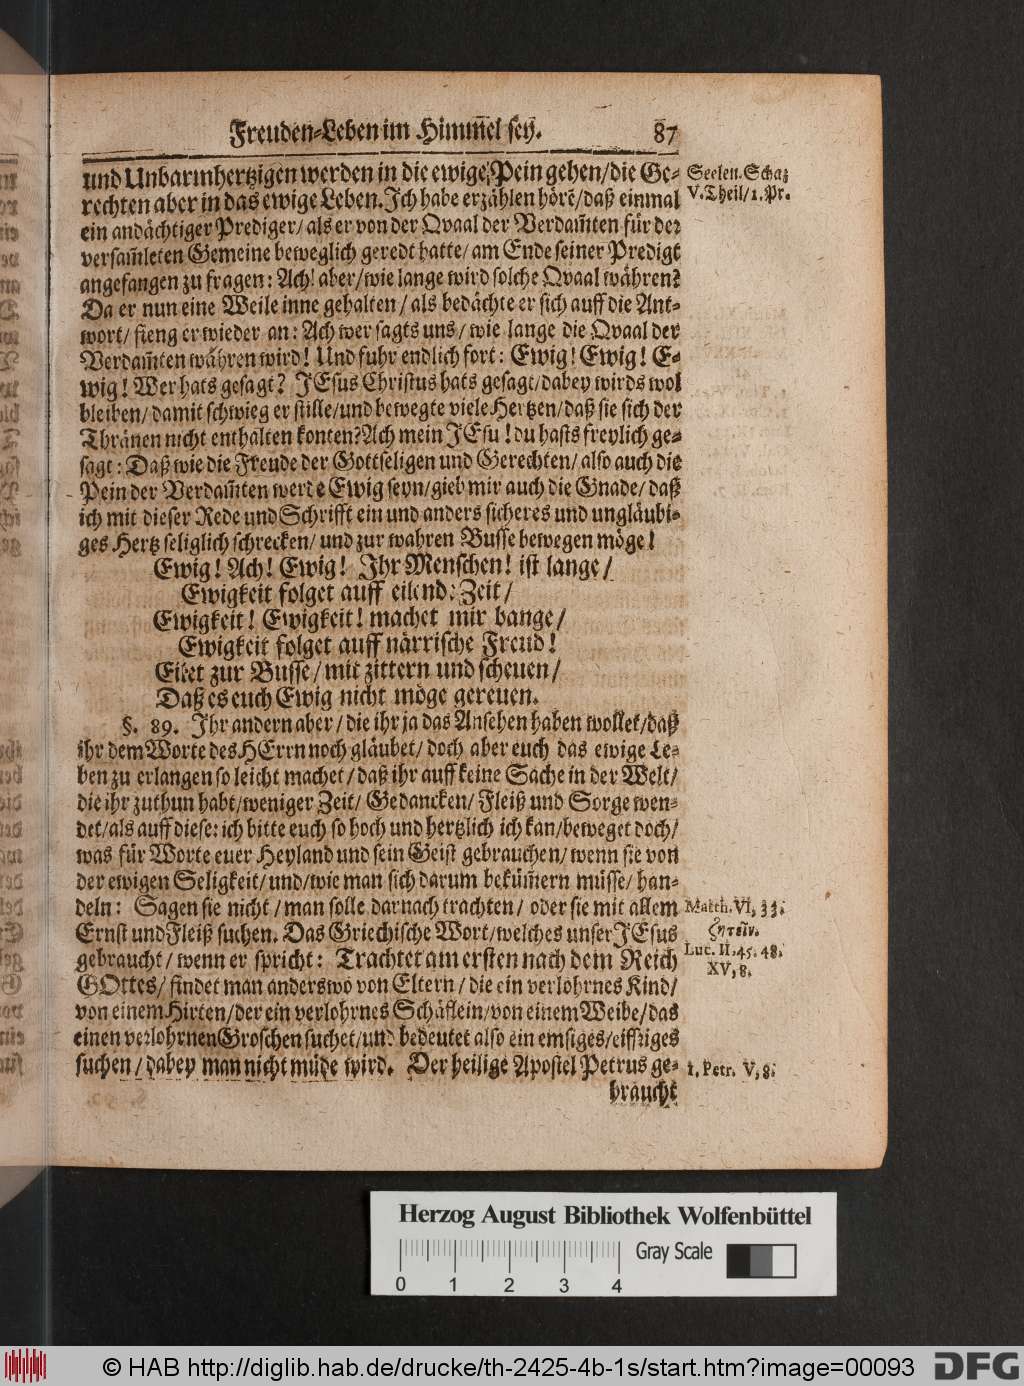 Freuden-Leben im Himm̃el sey. 87
und Unbarmhertzigen werden in die ewige Pein gehen/die Ge-
rechten aber in das ewige Leben. Ich habe erzählen hörẽ/daß einmal
ein andächtiger Prediger/als er von der Qvaal der Verdam̃ten für der
versam̃leten Gemeine beweglich geredt hatte/am Ende seiner Predigt
angefangen zu fragen: Ach! aber/wie lange wird solche Qvaal währen?
Da er nun eine Weile inne gehalten/als bedächte er sich auff die Ant-
wort/fieng er wieder an: Ach wer sagts uns/wie lange die Qvaal der
Verdam̃ten währen wird! Und fuhr endlich fort: Ewig! Ewig! E-
wig! Wer hats gesagt? JEsus Christus hats gesagt/dabey wirds wol
bleiben/damit schwieg er stille/und bewegte viele Hertzen/daß sie sich der
Thränen nicht enthalten konten? Ach mein JEsu! du hasts freylich ge-
sagt: Daß wie die Freude der Gottseligen und Gerechten/also auch die
Pein der Verdam̃ten werde Ewig seyn/gieb mir auch die Gnade/daß
ich mit dieser Rede und Schrifft ein und anders sicheres und ungläubi-
ges Hertz seliglich schrecken/und zur wahren Busse bewegen möge!
Ewig! Ach! Ewig! Ihr Menschen! ist lange/
Ewigkeit folget auff eilend: Zeit/
Ewigkeit! Ewigkeit! machet mir bange/
Ewigkeit folget auff närrische Freud!
Eilet zur Busse/mit zittern und scheuen/
Daß es euch Ewig nicht möge gereuen.
§. 89. Ihr andern aber/die ihr ja das Ansehen haben wollet/daß
ihr dem Worte des HErrn noch gläubet/doch aber euch das ewige Le-
ben zu erlangen so leicht machet/daß ihr auff keine Sache in der Welt/
die ihr zuthun habt/weniger Zeit/Gedancken/Fleiß und Sorge wen-
det/als auff diese: ich bitte euch so hoch und hertzlich ich kan/beweget doch/
was für Worte euer Heyland und sein Geist gebrauchen/wenn sie von
der ewigen Seligkeit/und/wie man sich darum beküm̃ern müsse/han-
deln: Sagen sie nicht/man solle darnach trachten/oder sie mit allem
Ernst und Fleiß suchen. Das Griechische Wort/welches unser JEsus
gebraucht/wenn er spricht: Trachtet am ersten nach dem Reich
GOttes/findet man anderswo von Eltern/die ein verlohrnes Kind/
von einem Hirten/der ein verlohrnes Schäflein/von einem Weibe/das
einen verlohrnen Groschen suchet/und bedeutet also ein emsiges/eiffriges
suchen/dabey man nicht müde wird. Der heilige Apostel Petrus ge-
braucht
Seelen-Schaz
V. Theil/1. Pr.
Matth. VI, 33.
ζητεῖν.
Luc. II. 45. 48.
XV, 8.
1. Petr. V, 8.
Herzog August Bibliothek Wolfenbüttel
Gray Scale
0 1 2 3 4
© HAB http://diglib.hab.de/drucke/th-2425-4b-1s/start.htm?image=00093 DFG